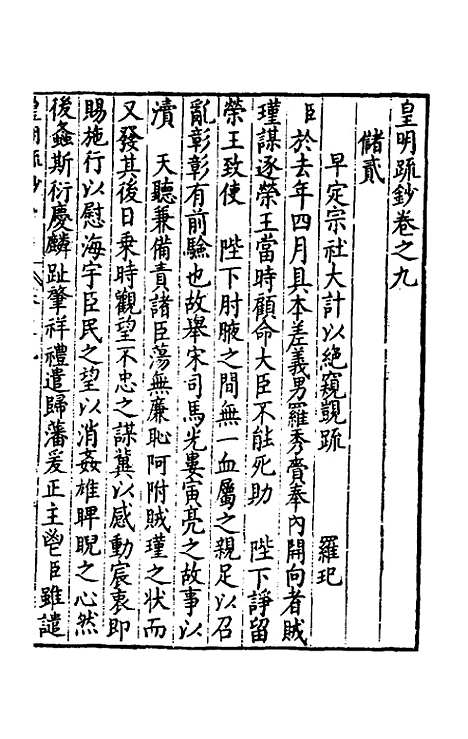 皇明疏鈔卷之九
儲貳
早定宗社大計以絕窺覬疏 羅玘
臣於去年四月具本差義男羅秀賫奉內開向者賊
瑾謀逐榮王當時顧命大臣不能死助 陛下諍留
榮王致使 陛下肘腋之間無一血屬之親足以召
亂彰彰有前驗也故舉宋司馬光婁寅亮之故事以
瀆 天聽兼備責諸臣蕩無廉恥阿附賊瑾之狀而
又發其後日乗時觀望不忠之謀冀以感動宸衷即
賜施行以慰海宇臣民之望以消姦雄睥睨之心然
後螽斯衍慶麟趾肇祥禮遣歸藩爰正主鬯臣雖譴